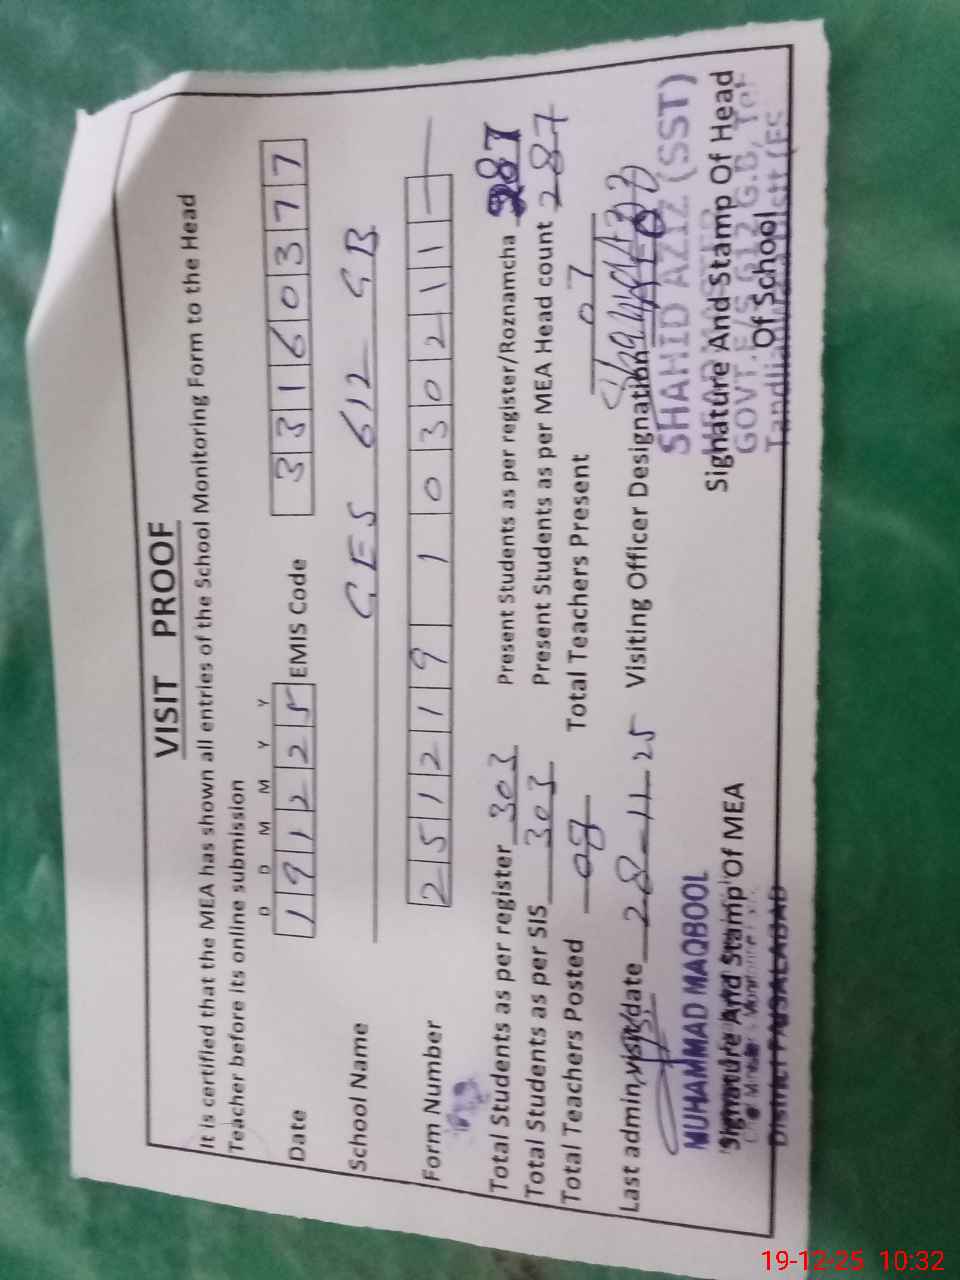 VISIT PROOF
It is certified that the MEA has shown all entries of the School Monitoring Form to the Head
Teacher before its online submission
D D M M Y Y
Date 1 9 1 2 2 5 EMIS Code 3 3 1 6 0 3 7 7
School Name GES 612 GB
Form Number 2 5 1 2 1 9 1 0 3 0 2 1 1 —
Total Students as per register 303 Present Students as per register/Roznamcha 287
Total Students as per SIS 303 Present Students as per MEA Head count 287
Total Teachers Posted 08 Total Teachers Present 07
Last admin, visit date 28-11-25 Visiting Officer Designation
MUHAMMAD MAQBOOL SHAHID AZIZ (SST)
Signature And Stamp Of MEA Signature And Stamp Of Head
Of School
GOVT. E/S 612 G.B,
District FAISALABAD
19-12-25 10:32